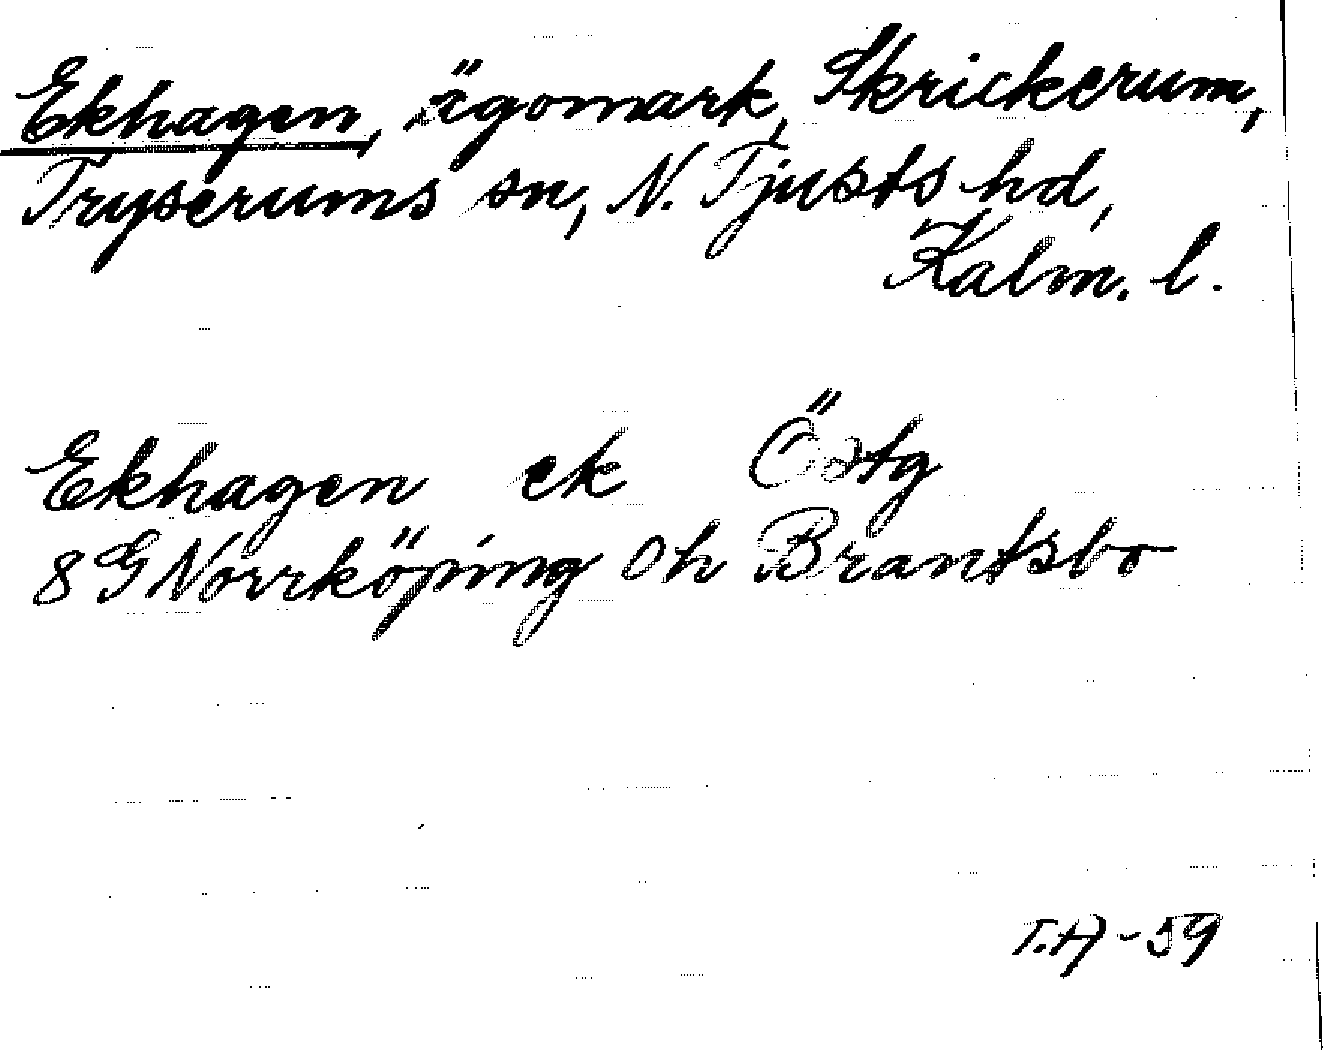 Ekhagen, ägomark, Skrickerum,
Tryserums sn, N. Tjusts hd,
Kalm. l.
Ekhagen ek Östg
8 G Norrköping Oh Brantsbo
T.A-59